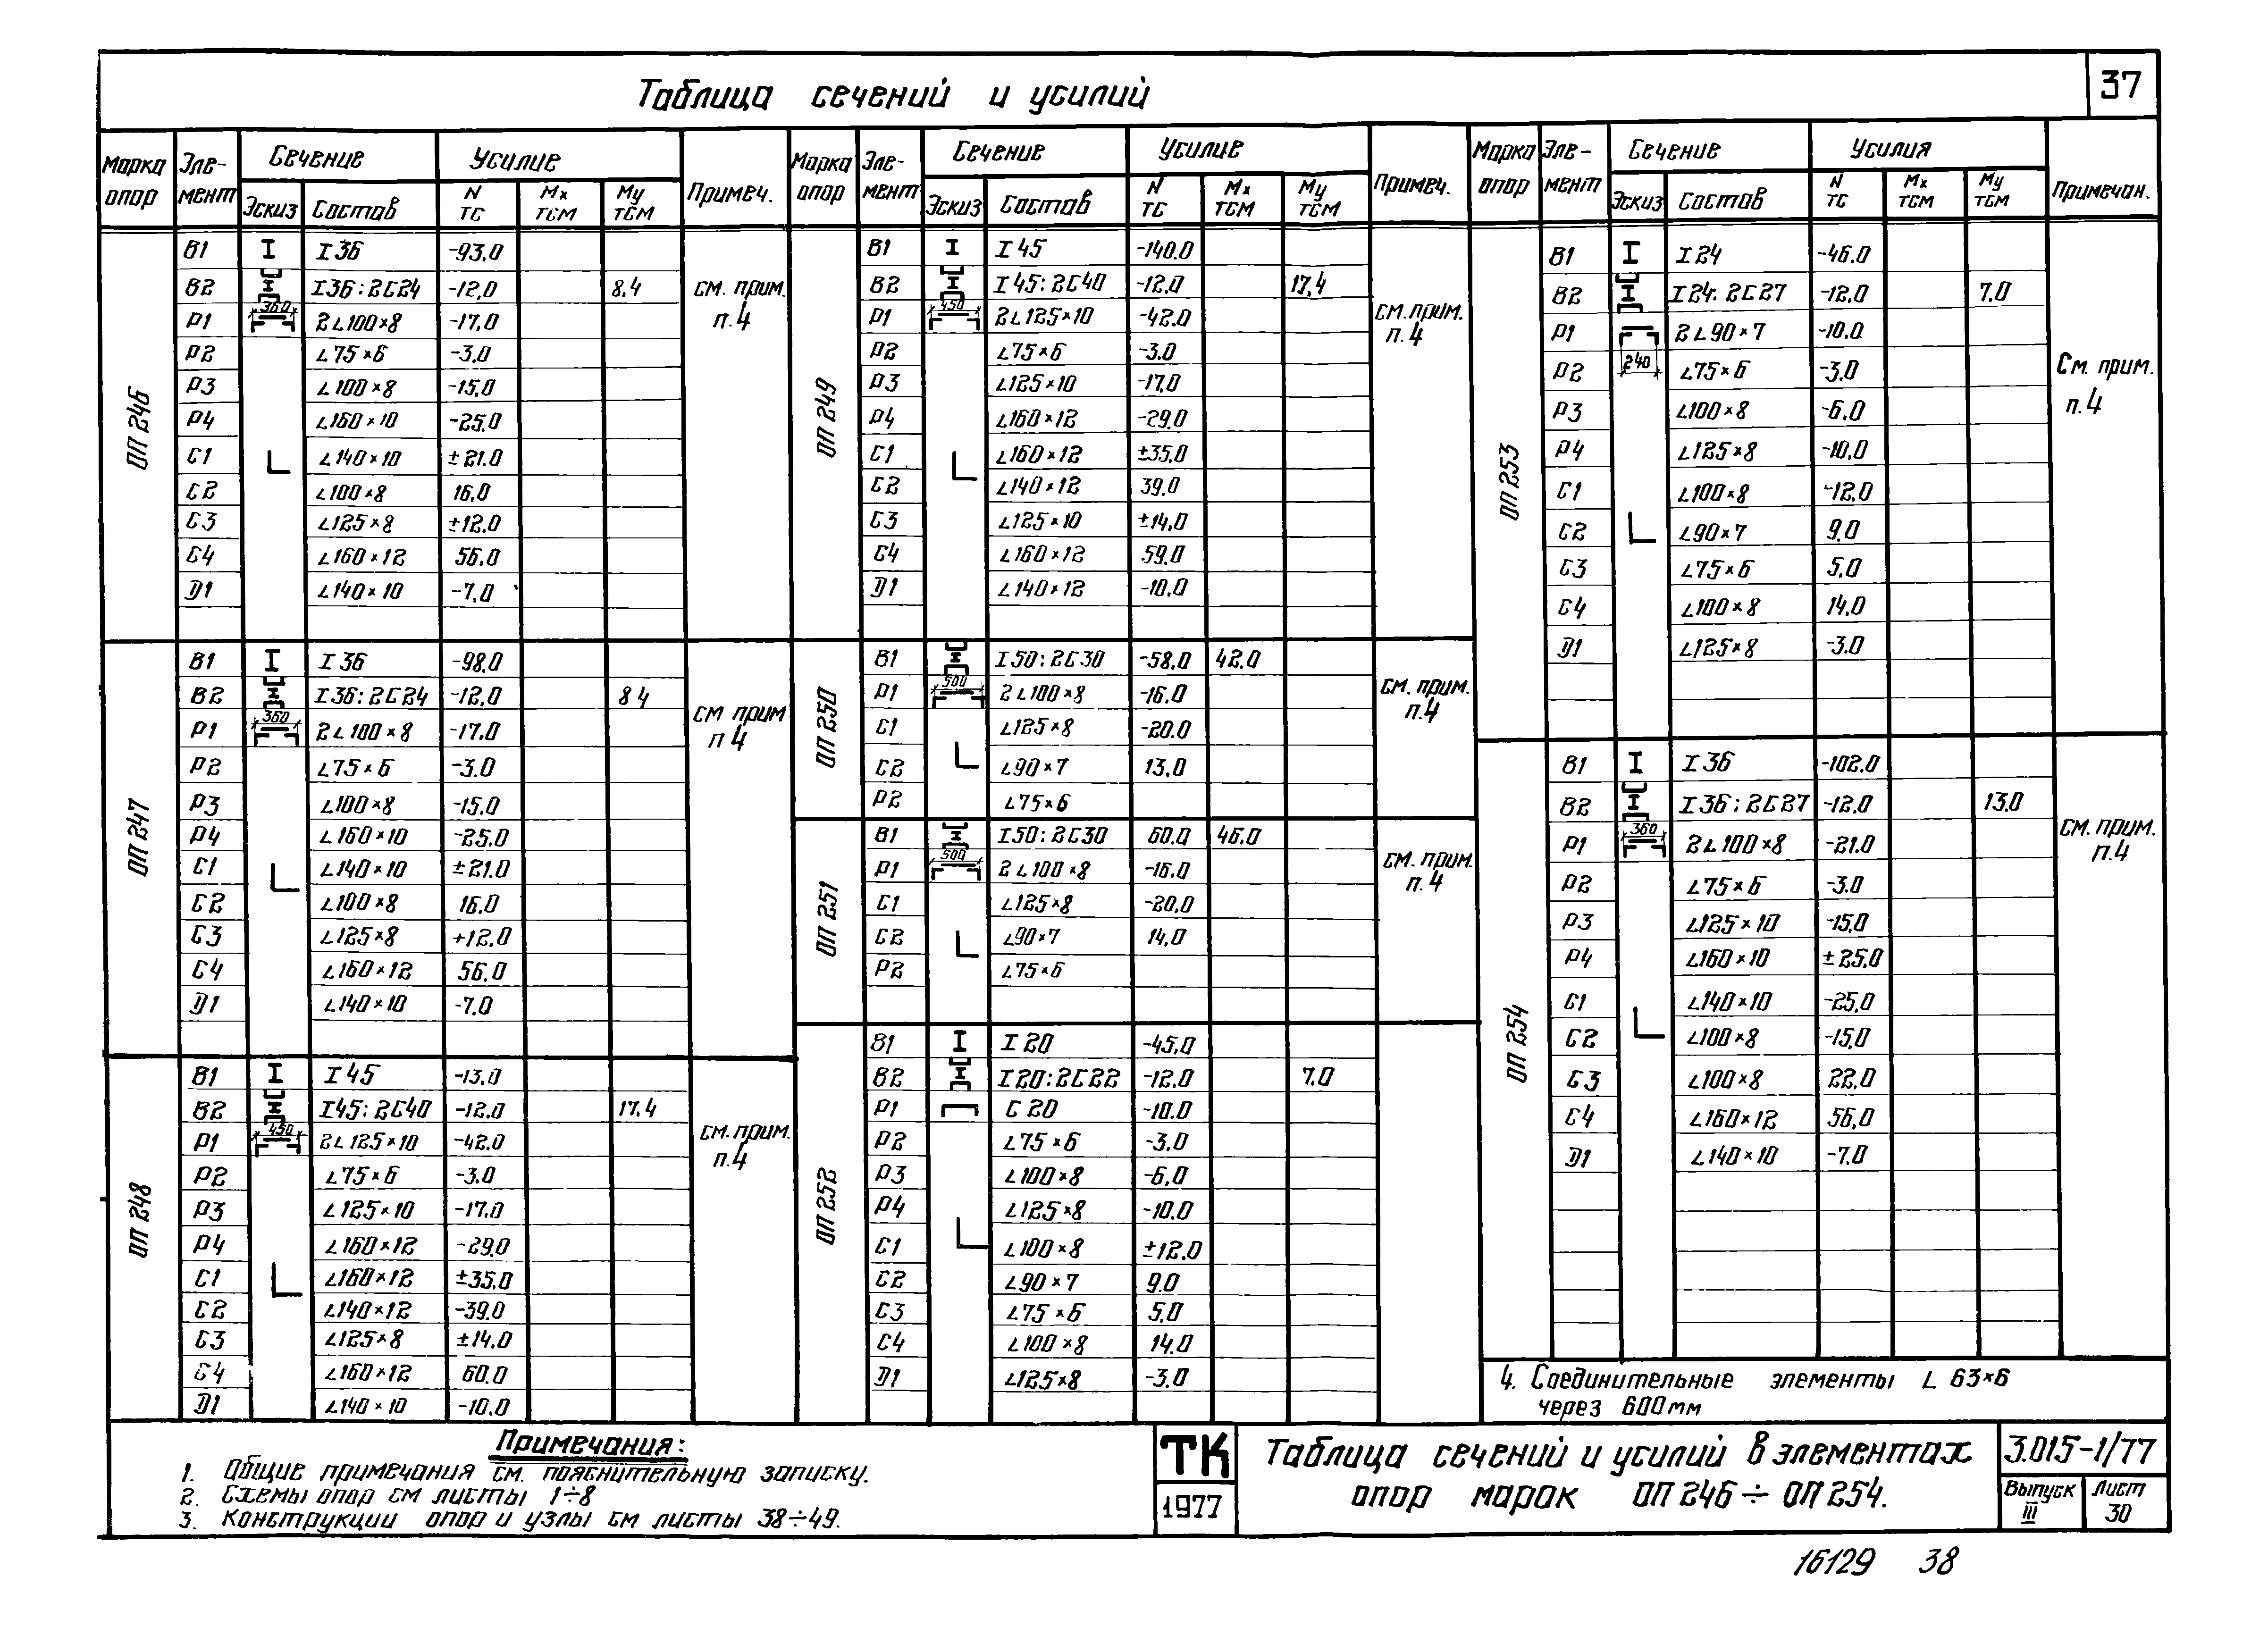 Таблица сечений и усилий
37
Марка опор Эле-мент Сечение Усилие Примеч.
Эскиз Состав N тс Mx тсм My тсм
ОП 246
В1 I 36 -93.0
В2 I 36:2С24 -12.0 8.4 см. прим. п.4
Р1 360 2∟100×8 -17.0
Р2 ∟75×6 -3.0
Р3 ∟100×8 -15.0
Р4 ∟160×10 -25.0
С1 ∟140×10 ±21.0
С2 ∟100×8 16.0
С3 ∟125×8 ±12.0
С4 ∟160×12 56.0
D1 ∟140×10 -7.0
ОП 247
В1 I 36 -98.0
В2 I 36:2С24 -12.0 8 4 см прим п 4
Р1 360 2∟100×8 -17.0
Р2 ∟75×6 -3.0
Р3 ∟100×8 -15.0
Р4 ∟160×10 -25.0
С1 ∟140×10 ±21.0
С2 ∟100×8 16.0
С3 ∟125×8 +12.0
С4 ∟160×12 56.0
D1 ∟140×10 -7.0
ОП 248
В1 I 45 -13.0
В2 I45:2С40 -12.0 17.4 см. прим. п.4
Р1 450 2∟125×10 -42.0
Р2 ∟75×6 -3.0
Р3 ∟125×10 -17.0
Р4 ∟160×12 -29.0
С1 ∟160×12 ±35.0
С2 ∟140×12 -39.0
С3 ∟125×8 ±14.0
С4 ∟160×12 60.0
D1 ∟140×10 -10.0
Марка опор Эле-мент Сечение Усилие Примеч.
Эскиз Состав N тс Mx тсм My тсм
ОП 249
В1 I 45 -140.0
В2 I 45:2С40 -12.0 17.4 см. прим. п.4
Р1 450 2∟125×10 -42.0
Р2 ∟75×6 -3.0
Р3 ∟125×10 -17.0
Р4 ∟160×12 -29.0
С1 ∟160×12 ±35.0
С2 ∟140×12 39.0
С3 ∟125×10 ±14.0
С4 ∟160×12 59.0
D1 ∟140×12 -10.0
ОП 250
В1 I50:2С30 -58.0 42.0 см. прим. п.4
Р1 500 2∟100×8 -16.0
С1 ∟125×8 -20.0
С2 ∟90×7 13.0
Р2 ∟75×6
ОП 251
В1 I50:2С30 60.0 46.0 см. прим. п.4
Р1 500 2∟100×8 -16.0
С1 ∟125×8 -20.0
С2 ∟90×7 14.0
Р2 ∟75×6
ОП 252
В1 I 20 -45.0
В2 I20:2С22 -12.0 7.0
Р1 С 20 -10.0
Р2 ∟75×6 -3.0
Р3 ∟100×8 -6.0
Р4 ∟125×8 -10.0
С1 ∟100×8 ±12.0
С2 ∟90×7 9.0
С3 ∟75×6 5.0
С4 ∟100×8 14.0
D1 ∟125×8 -3.0
Марка опор Эле-мент Сечение Усилия Примечан.
Эскиз Состав N тс Mx тсм My тсм
ОП 253
В1 I 24 -46.0
В2 I24:2С27 -12.0 7.0
Р1 2∟90×7 -10.0
Р2 240 ∟75×6 -3.0 См. прим. п.4
Р3 ∟100×8 -6.0
Р4 ∟125×8 -10.0
С1 ∟100×8 -12.0
С2 ∟90×7 9.0
С3 ∟75×6 5.0
С4 ∟100×8 14.0
D1 ∟125×8 -3.0
ОП 254
В1 I 36 -102.0
В2 I 36:2С27 -12.0 13.0 см. прим. п.4
Р1 360 2∟100×8 -21.0
Р2 ∟75×6 -3.0
Р3 ∟125×10 -15.0
Р4 ∟160×10 ±25.0
С1 ∟140×10 -25.0
С2 ∟100×8 -15.0
С3 ∟100×8 22.0
С4 ∟160×12 56.0
D1 ∟140×10 -7.0
4. Соединительные элементы ∟ 63×6
через 600 мм
Примечания:
1. Общие примечания см. пояснительную записку.
2. Схемы опор см листы 1÷8
3. Конструкции опор и узлы см листы 38÷49.
ТК
1977
Таблица сечений и усилий в элементах
опор марок ОП 246 ÷ ОП 254.
3.015-1/77
Выпуск III
Лист 30
16129 38